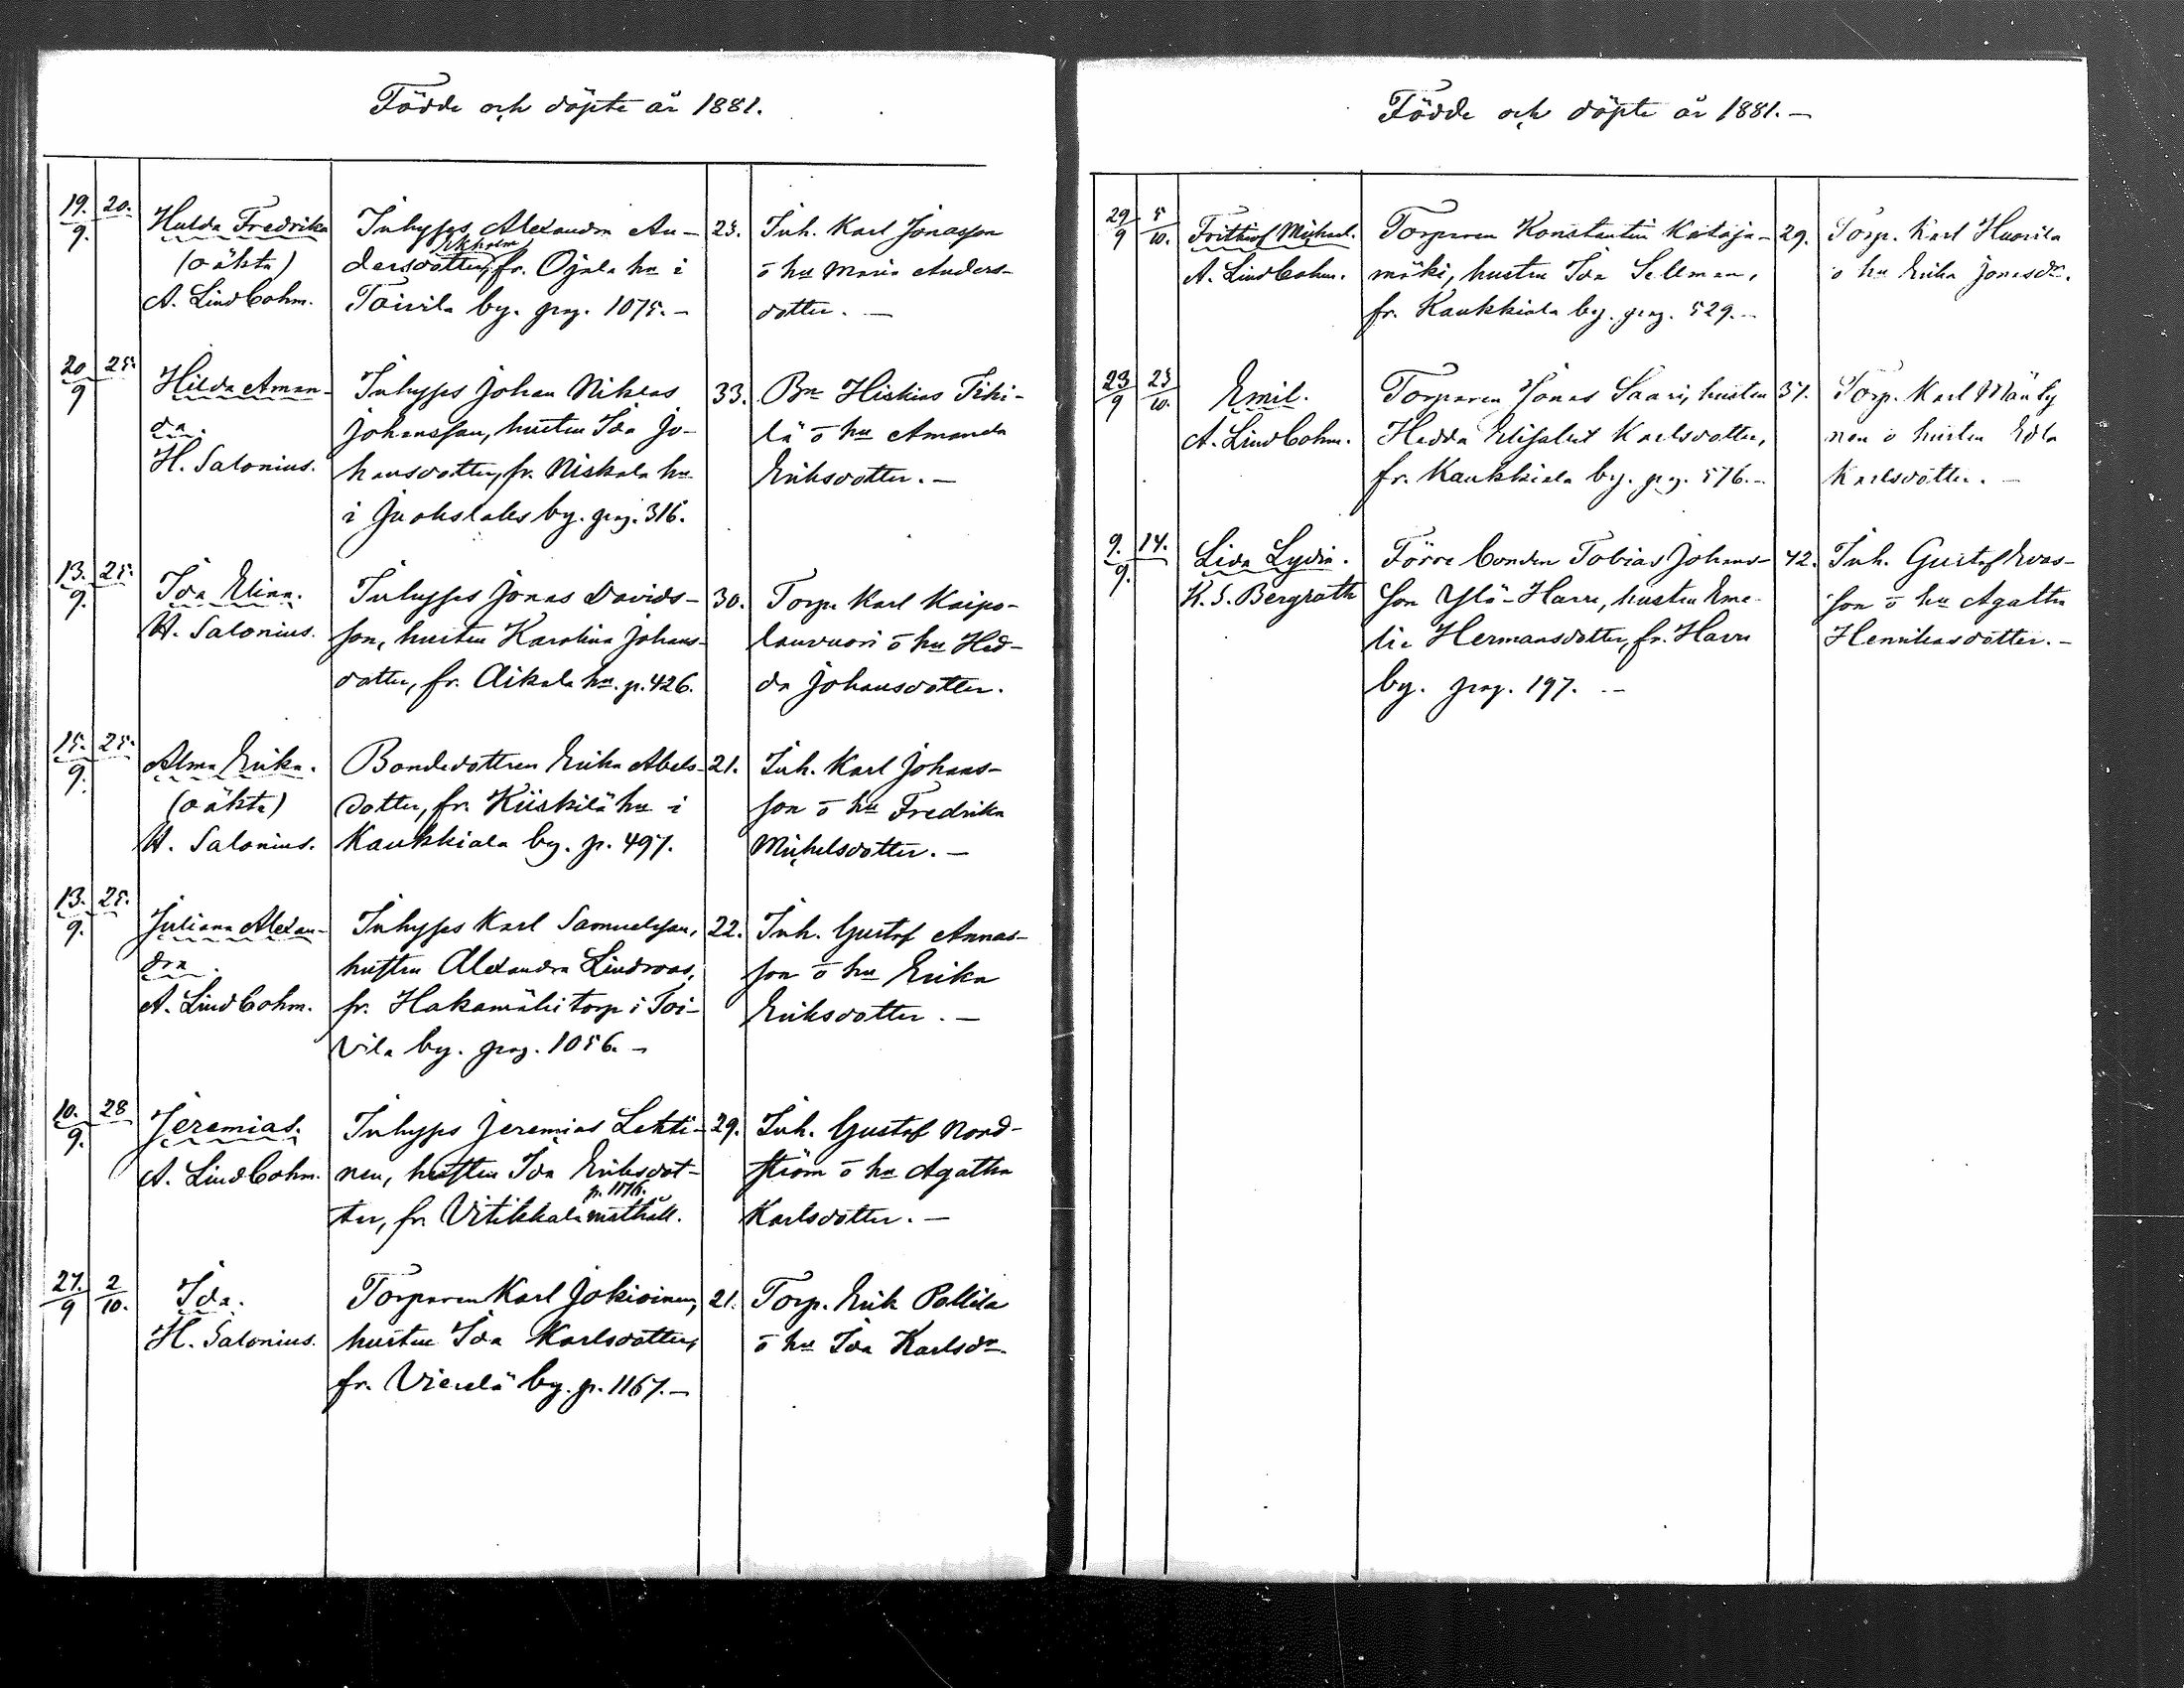 Födde och döpte år 1881.
19. 20.
9.
Hulda Fredrika
(oäkta)
A. Lindbohm.
Inhyses Alexandra An-
Ekholm
dersdotter, fr. Ojala hn i
Toivila by. pag. 1075. –
23.
Inh. Karl Jonasson
o hu Maria Anders-
dotter. –
20 25.
9
Hilda Aman-
da.
H. Salonius.
Inhyses Johan Niklas
Johansson, hustru Ida Jo-
hansdotter, fr. Niskala hn
i Juokslaks by. pag. 316.
33.
Bn Hiskias Tiki-
lä o hu Amanda
Eriksdotter. –
13. 25.
9.
Ida Elina.
H. Salonius.
Inhyses Jonas Davids-
son, hustru Karolina Johans-
dotter, fr. Aikala hn. p. 426.
30.
Torp. Karl Kaipo-
lanvuori o hu Hed-
da Johansdotter.
15. 25.
9.
Alma Erika.
(oäkta)
H. Salonius.
Bondedottren Erika Abels-
dotter, fr. Kiiskilä hn i
Kaukkiala by. p. 497.
21.
Inh. Karl Johans-
son o hu Fredrika
Mickelsdotter. –
13. 25.
9.
Juliana Alexan-
dra.
A. Lindbohm.
Inhyses Karl Samuelsson,
hustru Alexandra Lindroos,
fr. Hakamäki torp i Toi-
vila by. pag. 1056. –
22.
Inh. Gustaf Annas-
son o hu Erika
Eriksdotter. –
10. 28
9.
Jeremias.
A. Lindbohm.
Inhyses Jeremias Lehti-
nen, hustru Ida Eriksdot-
p. 1176.
ter, fr. Vitikkala måthåll.
29.
Inh. Gustaf Nord-
ström o hu Agatha
Karlsdotter. –
27. 2
9 10.
Ida.
H. Salonius.
Torparen Karl Jokioinen,
hustru Ida Karlsdotter,
fr. Vierelä by. p. 1167. –
21.
Torp. Erik Pollila
o hu Ida Karlsdr.
Födde och döpte år 1881. –
29 5
9 10.
Frithiof Michael.
A. Lindbohm.
Torparen Konstantin Kataja-
mäki, hustru Ida Selman,
fr. Kaukkiala by. pag. 529. –
29.
Torp. Karl Huorila
o hu Erika Jonasdr.
23 23
9 10.
Emil.
A. Lindbohm.
Torparen Jonas Saari, hustru
Hedda Elisabet Karlsdotter,
fr. Kaukkiala by. pag. 576. –
37.
Torp. Karl Mänty
nen o hustru Edla
Karlsdotter. –
9. 14.
9.
Lida Lydia.
K. S. Bergroth
Förre bonden Tobias Johans-
son Ylä-Harre, hustru Eme-
lie Hermansdotter, fr. Harre
by. pag. 197. –
42.
Inh. Gustaf Evas-
son o hu Agatha
Henriksdotter. –